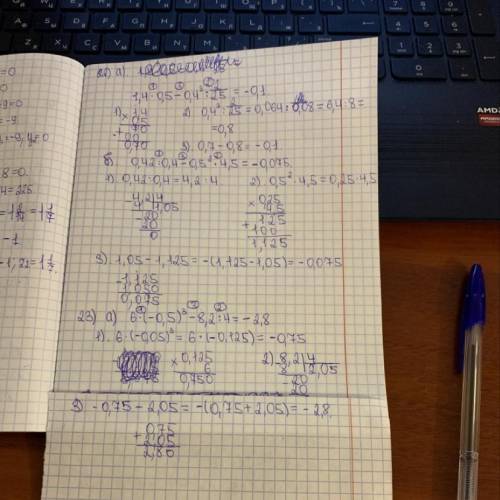 =0
0
+9=0
=-9
=-9, y=0
8=0.
4=225
-1
22) а).
1,4 · 0,5 - 0,4³ : 2/25 = -0,1
1) 1,4
× 0,5
70
+ 00
0,70
2) 0,4³ : 2/25 = 0,064 : 0,08 = 6,4 : 8 =
= 0,8
3). 0,7 - 0,8 = -0,1
б). 0,42 : 0,4 - 0,5² · 4,5 = -0,075.
1) 0,42 : 0,4 = 4,2 : 4
2) 0,5² · 4,5 = 0,25 · 4,5
4,2|4
4
1,05
20
20
0
× 0,25
4,5
125
+ 100
1,125
3) 1,05 - 1,125 = -(1,125 - 1,05) = -0,075
- 1,125
1,050
0,075
23) а) 6 · (-0,5)³ - 8,2 : 4 = -2,8
1). 6 · (-0,5)³ = 6 · (-0,125) = -0,75
× 0,125
6
0,750
2) 8,2|4
8
2,05
- 20
20
3) -0,75 - 2,05 = -(0,75 + 2,05) = -2,8
0,75
+ 2,05
2,80
AMD